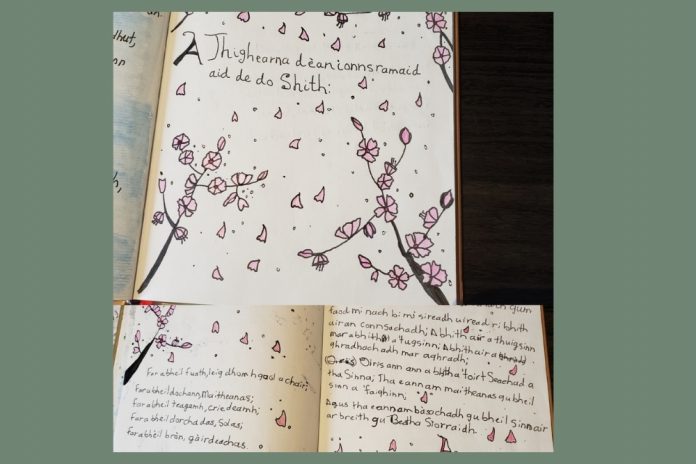 dhut,
A Thighearna dèan ionnsramaid
aid de do Shith:
Far a bheil fuath, leig dhomh gaol a chair;
Far a bheil dochann, Maitheanas;
far a bheil teagamh, criedeamh;
Far a bheil dorchadas, Solas;
far a bhèil bròn, gàirdeachas.
gum
faod mi nach bi mi sireadh uiread ri bhith
air an connsachadh; A bhith air a thuigsinn
mar a bhith a 'tugsinn; A bhith air a
ghradhachadh mar aghradh;
Oiris ann an a bhith a 'toirt Seachad a
tha Sinna; Tha e ann am maitheanas gu bheil
sinn a 'faighinn;
Agus tha e ann am bàsachadh gu bheil sinn air
ar breith gu Beatha Siorraidh.